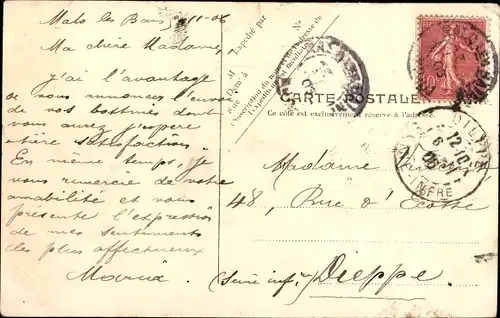 Malo les Bains 11-06
Ma chère Madame,
J'ai l'avantage
de vous annoncer l'envoi
de vos bottines dont
vous aurez j'espère
entière satisfaction.
En même temps, je
vous remercie de votre
amabilité et vous
présente l'expression
de mes sentiments
les plus affectueux
Maria
Expédié par
M
Demt à
Rue
No
L'inscription du nom et de l'adresse de
l'expéditeur est facultative
CARTE POSTALE
Ce côté est exclusivement réservé à l'adresse.
Madame
48, Rue d'Ecosse
(Seine infre) Dieppe.
DIEPPE
12
6
INFRE
10